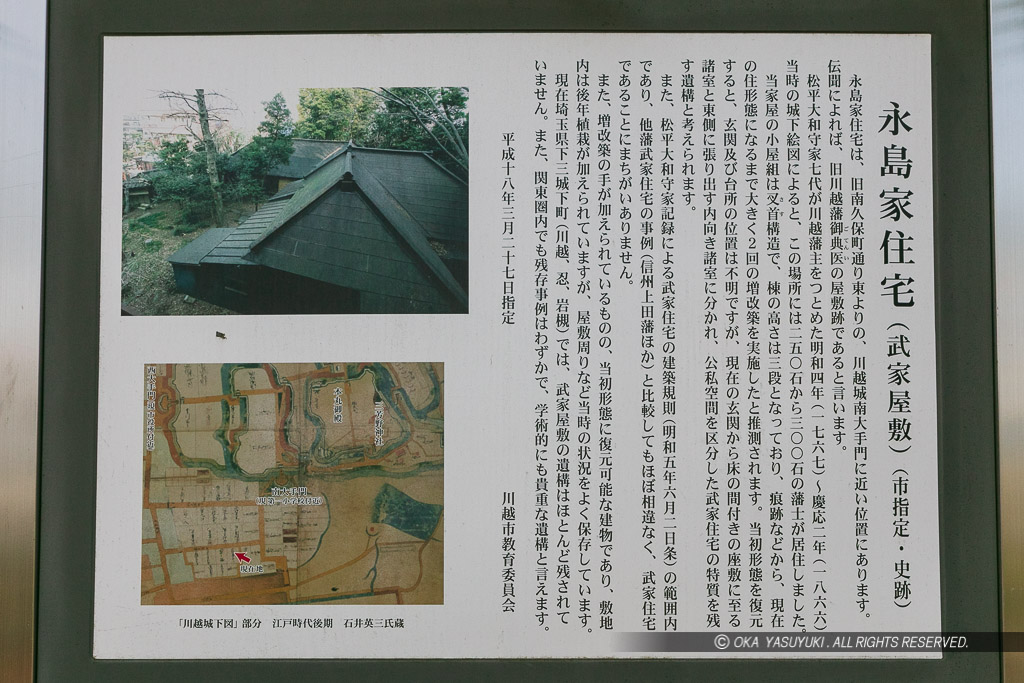 永島家住宅(武家屋敷)(市指定・史跡)
永島家住宅は、旧南久保町通り東よりの、川越城南大手門に近い位置にあります。
伝聞によれば、旧川越藩御典医の屋敷跡であると言います。
ごてんい
松平大和守家七代が川越藩主をつとめた明和四年(一七六七)～慶応二年(一八六六)
当時の城下絵図によると、この場所には二五〇石から三〇〇石の藩士が居住しました。
当家屋の小屋組は叉首構造で、棟の高さは三段となっており、痕跡などから、現在
さす
の住形態になるまで大きく2回の増改築を実施したと推測されます。当初形態を復元
すると、玄関及び台所の位置は不明ですが、現在の玄関から床の間付きの座敷に至る
諸室と東側に張り出す内向き諸室に分かれ、公私空間を区分した武家住宅の特質を残
す遺構と考えられます。
また、松平大和守家記録による武家住宅の建築規則(明和五年六月二日条)の範囲内
であり、他藩武家住宅の事例(信州上田藩ほか)と比較してもほぼ相違なく、武家住宅
であることにまちがいありません。
また、増改築の手が加えられているものの、当初形態に復元可能な建物であり、敷地
内は後年植栽が加えられていますが、屋敷周りなど当時の状況をよく保存しています。
現在埼玉県下三城下町(川越、忍、岩槻)では、武家屋敷の遺構はほとんど残されて
いません。また、関東圏内でも残存事例はわずかで、学術的にも貴重な遺構と言えます。
平成十八年三月二十七日指定
川越市教育委員会
西大手門(現市役所付近)
本丸御殿
三芳野神社
南大手門
(現第一小学校付近)
現在地
「川越城下図」部分 江戸時代後期 石井英三氏蔵
© OKA YASUYUKI . ALL RIGHTS RESERVED.